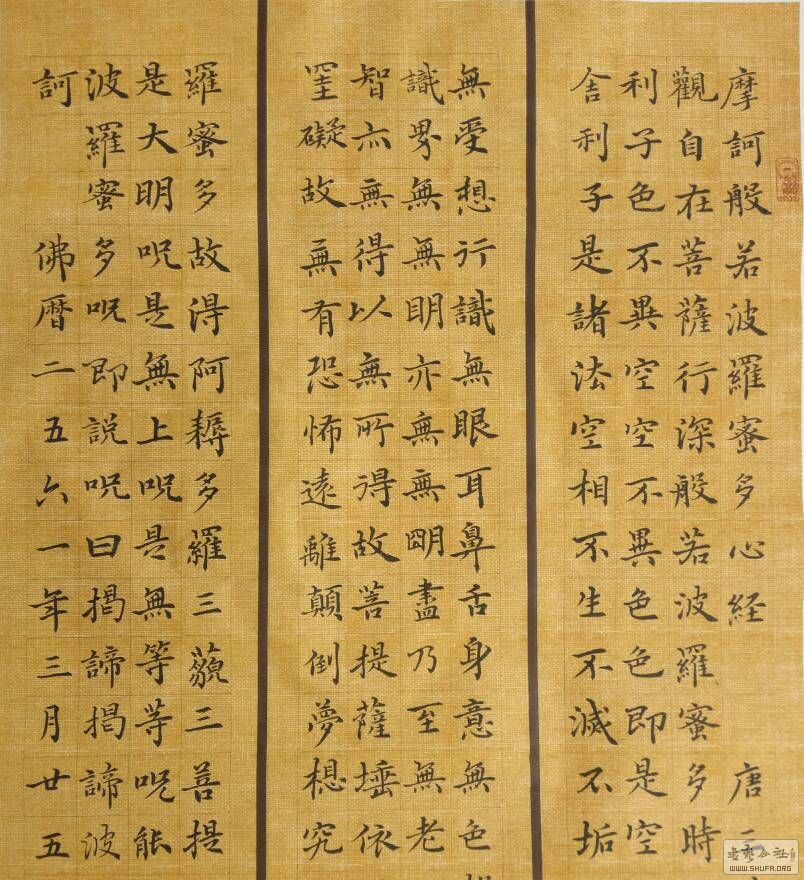 摩訶般若波羅蜜多心経 唐三
觀自在菩薩行深般若波羅蜜多時
利子色不異空空不異色色即是空
舍利子是諸法空相不生不滅不垢
無受想行識無眼耳鼻舌身意無色
識界無無明亦無無明盡乃至無老
智亦無得以無所得故菩提薩埵依
罣礙故無有恐怖遠離顛倒夢想究
羅蜜多故得阿耨多羅三藐三菩提
是大明呪是無上呪是無等等呪能
波羅蜜多呪即説呪曰揭諦揭諦波
訶 佛曆二五六一年三月廿五
WWW.SHUFA.ORG